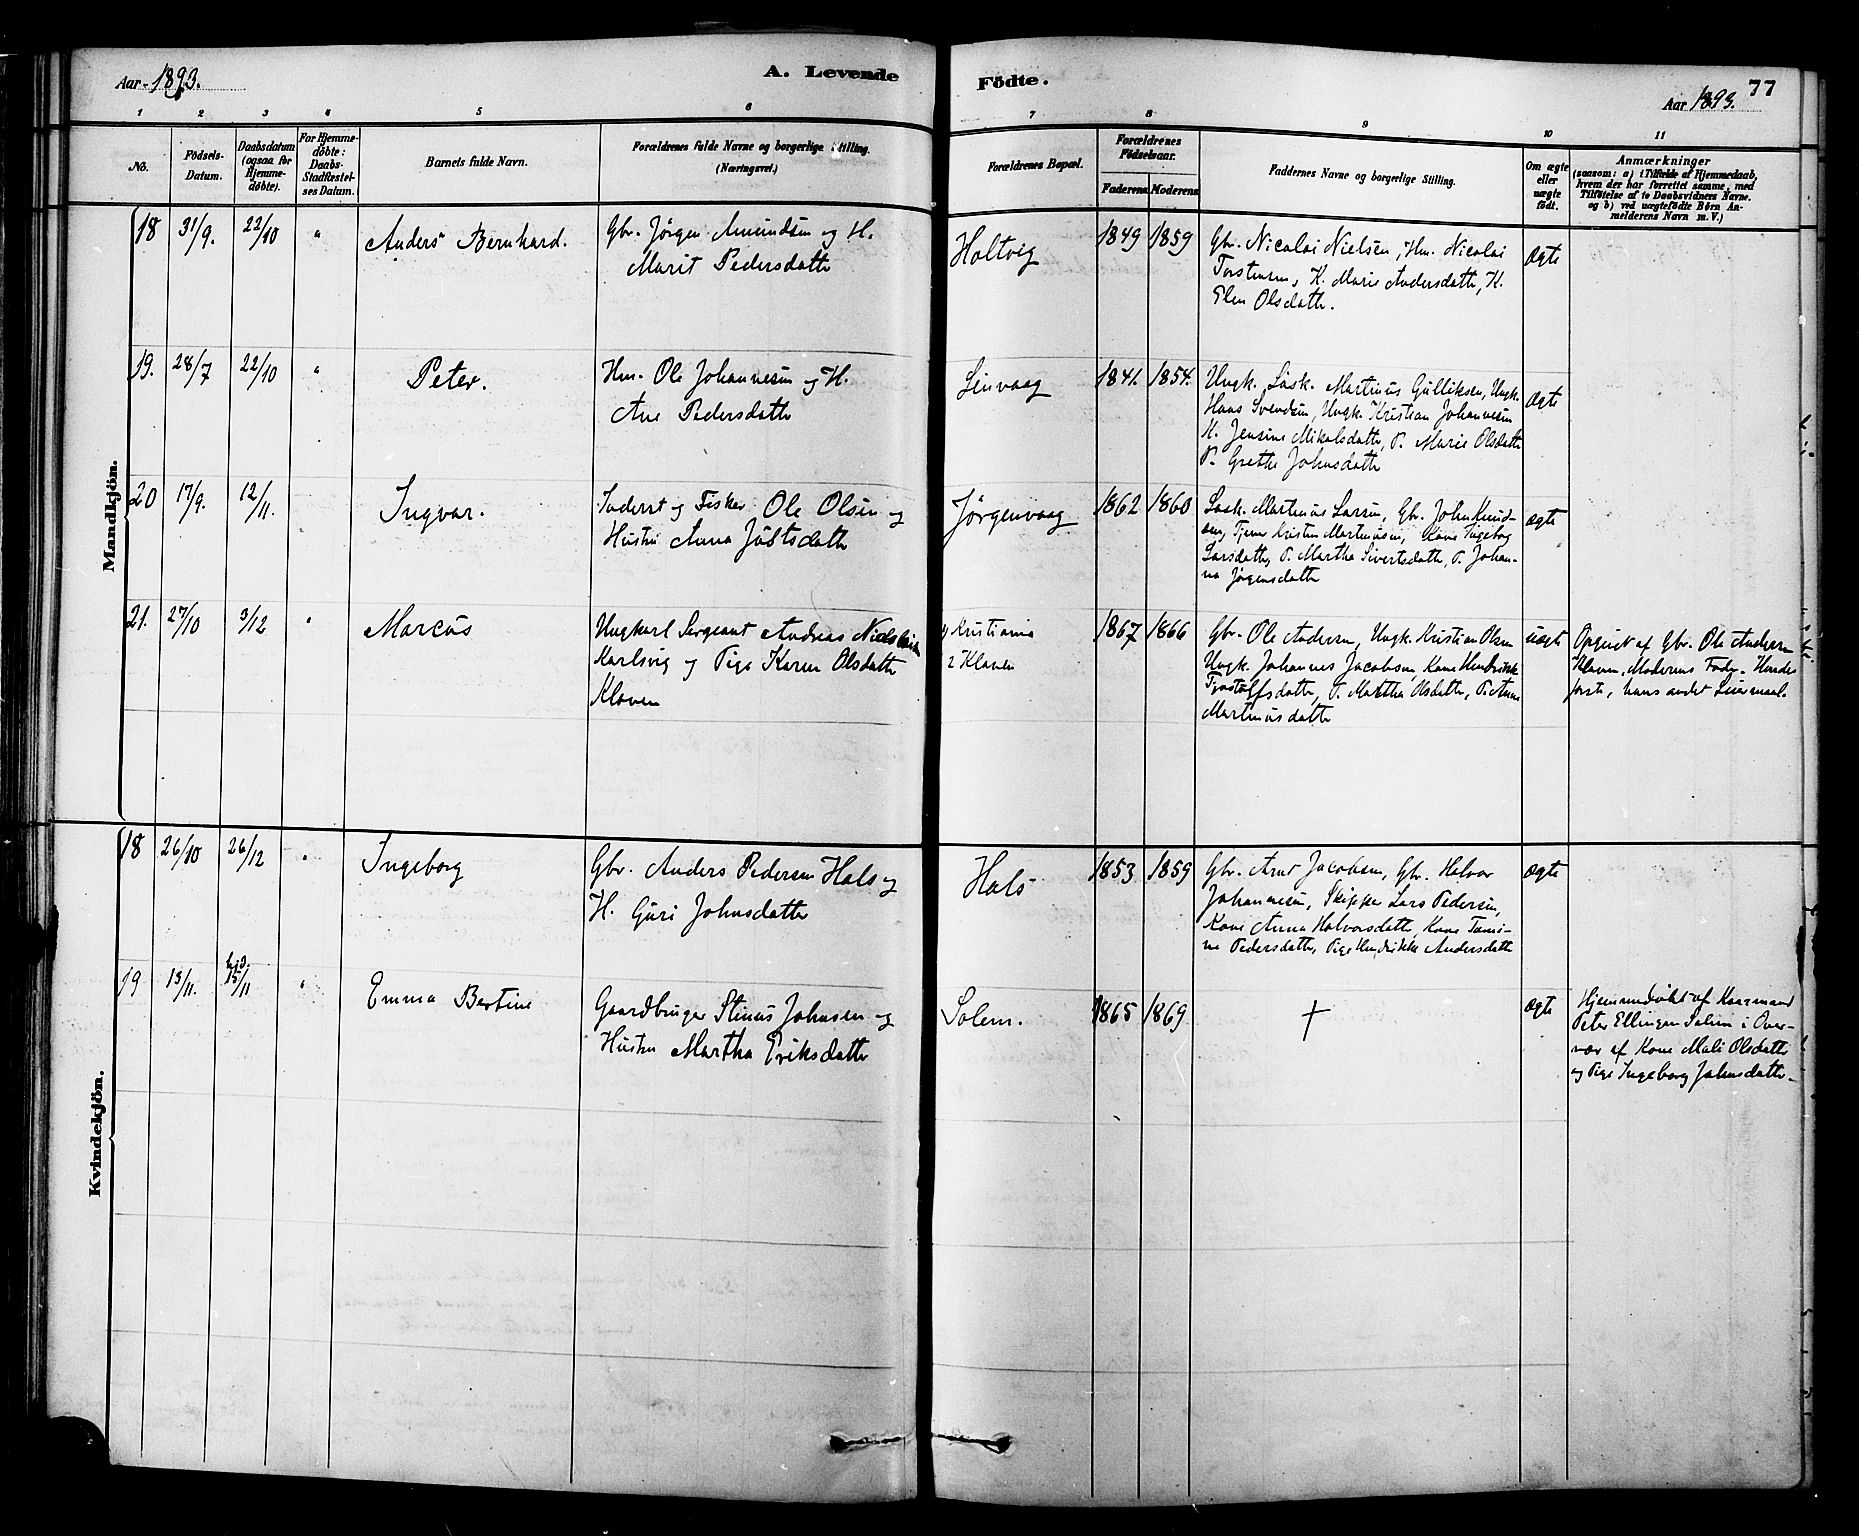 Aar 1893. A. Levende Födte. Aar 1893. 77
1 2 3 4 5 6 7 8 9 10 11
No. Födsels-Datum. Daabsdatum (ogsaa for Hjemme-døbte). For Hjemme-døbte: Daabs-Stadfæstel-ses Datum. Barnets fulde Navn. Forældrenes fulde Navne og borgerlige Stilling. (Næringsvei.) Forældrenes Bopæl. Forældrenes Födselsaar. Faderens Moderens Faddernes Navne og borgerlige Stilling. Om ægte eller uægte født. Anmærkninger
(saasom: a) i Tilfælde af Hjemmedaab,
hvem der har forrettet samme, med
Tilföielse af to Daabsvidners Navne.
og b) ved uægtefödte Börn An-
melderens Navn m. V.)
Mandkjön.
18 31/9. 22/10 " Anders Bernhard. Gbr. Jørgen Amundsen og H.
Marit Pedersdatter
Holtvig 1849 1859 Gbr. Nicolai Nielsen, Hm. Nicolai
Torstensen, K. Marie Andersdatter, K.
Elen Olsdatter.
Ægte
19. 28/7 22/10 " Peter. Hm. Ole Johannesen og H.
Ane Pedersdatter
Linvaag 1841. 1854. Ungk. Losk. Martinus Gulliksen, Ungk.
Hans Svendsen, Ungk. Kristian Johannesen
K. Jensine Mikalsdatter, P. Marie Olsdatter
P. Grethe Johnsdatter
Ægte
20 17/9. 12/11. Ingvar. Inderst og Fisker Ole Olsen og
Hustru Anna Justsdatter
Jørgenvaag 1862 1860 Losk. Martinus Larsen, Gbr. John Knud-
sen, Tjener Kristen Martinusen, Kone Ingeborg
Larsdatter, P. Martha Sivertsdatter, P. Johan-
na Jørgensdatter
ægte
21. 27/10 3/12 " Marcus Ungkarl Sergeant Andreas
Karlsvig og Pige Karen Olsdatter
Klaven
1) Kristiania
2 Klaven
1867 1866 Gbr. Ole Andersen, Ungk. Kristian Olsen
Ungk. Johannes Jacobsen, Kone Hendrikke
Tjostolfsdatter, P. Martha Olsdatter, P. Anne
Martinusdatter
uægte Opgivet af Gbr. Ole Andersen
Klaven, Moderens Fader. Hendes
første, hans andet Leiermaal.
Kvindekjön.
18 26/10 26/12 " Ingeborg Gbr. Anders Pedersen Hals og
H. Guri Johnsdatter
Hals 1853 1859 Gbr. Arnt Jacobsen, Gbr. Halvor
Johannesen, Skipper Lars Pedersen,
Kone Anna Halvorsdatter, Kone Tami-
na Pedersdatter, Pige Hendrikke Andersdatter
ægte
19 13/11. hjd. 15/11 " Emma Bertine Gaardbruger Stinus Johnsen og
Hustru Martha Eriksdatter
Solem. 1865 1869 † ægte Hjemmedøbt af Kaarmand
Peter Ellingsen Solem i Over-
vær af Kone Mali Olsdatter
og Pige Ingeborg Johnsdatter.